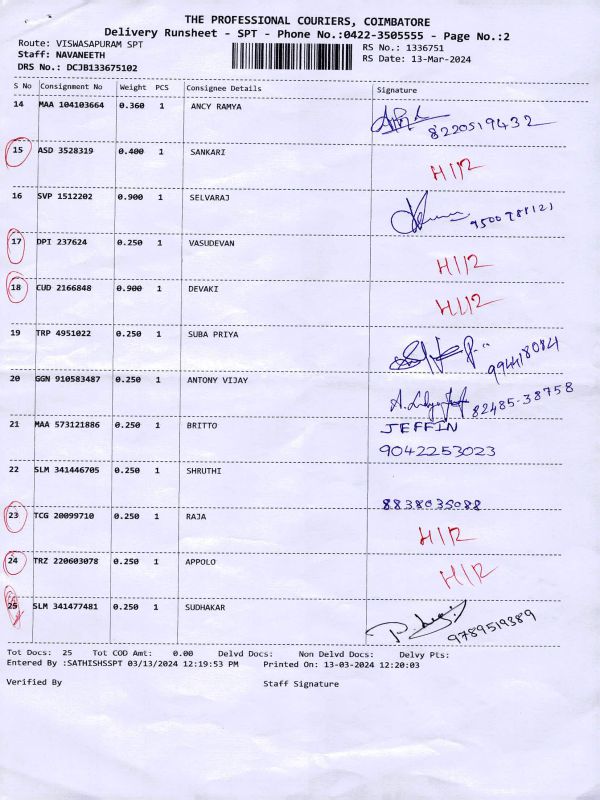 THE PROFESSIONAL COURIERS, COIMBATORE
Delivery Runsheet - SPT - Phone No.:0422-3505555 - Page No.:2
Route: VISWASAPURAM SPT RS No.: 1336751
Staff: NAVANEETH RS Date: 13-Mar-2024
DRS No.: DCJB133675102
S No Consignment No Weight PCS Consignee Details Signature
14 MAA 104103664 0.360 1 ANCY RAMYA
8220519432
15 ASD 3528319 0.400 1 SANKARI
H/12
16 SVP 1512202 0.900 1 SELVARAJ
17 DPI 237624 0.250 1 VASUDEVAN
H/12
18 CUD 2166848 0.900 1 DEVAKI
H/12
19 TRP 4951022 0.250 1 SUBA PRIYA
20 GGN 910583487 0.250 1 ANTONY VIJAY
82485-38758
21 MAA 573121886 0.250 1 BRITTO JEFFIN
9042253023
22 SLM 341446705 0.250 1 SHRUTHI
8838035088
23 TCG 20099710 0.250 1 RAJA
H/12
24 TRZ 220603078 0.250 1 APPOLO
H/12
25 SLM 341477481 0.250 1 SUDHAKAR
9789519389
Tot Docs: 25 Tot COD Amt: 0.00 Delvd Docs: Non Delvd Docs: Delvy Pts:
Entered By :SATHISHSSPT 03/13/2024 12:19:53 PM Printed On: 13-03-2024 12:20:03
Verified By Staff Signature